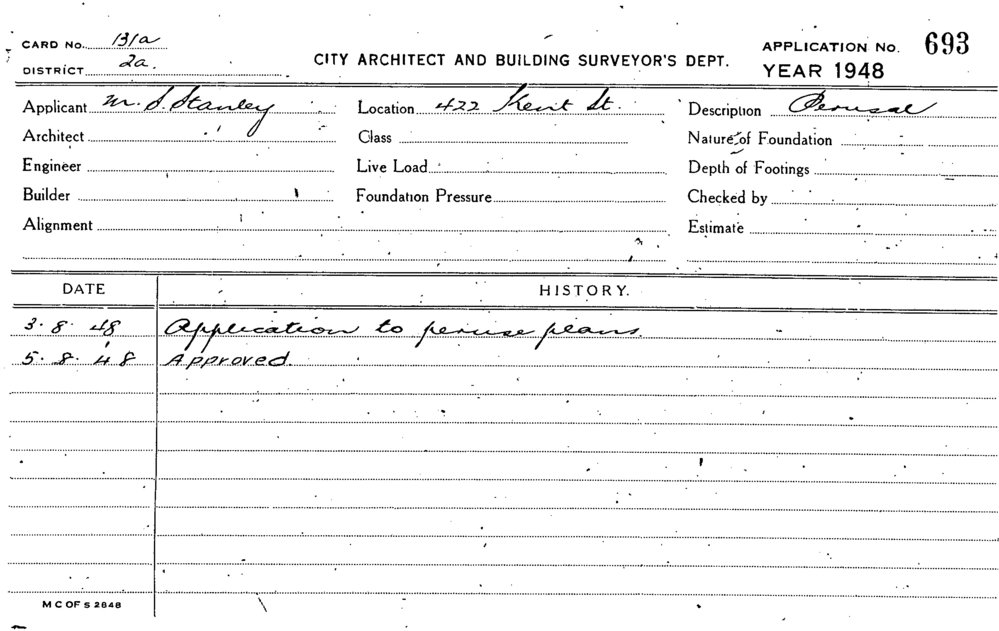 CARD No. 131a
DISTRICT 2a.
CITY ARCHITECT AND BUILDING SURVEYOR'S DEPT.
APPLICATION No. 693
YEAR 1948
Applicant M. S. Stanley Location 422 Kent St. Description Perusal
Architect Class Nature of Foundation
Engineer Live Load Depth of Footings
Builder Foundation Pressure Checked by
Alignment Estimate
DATE HISTORY.
3. 8. 48 Application to peruse plans.
5. 8. 48 Approved.
M C OF S 2848